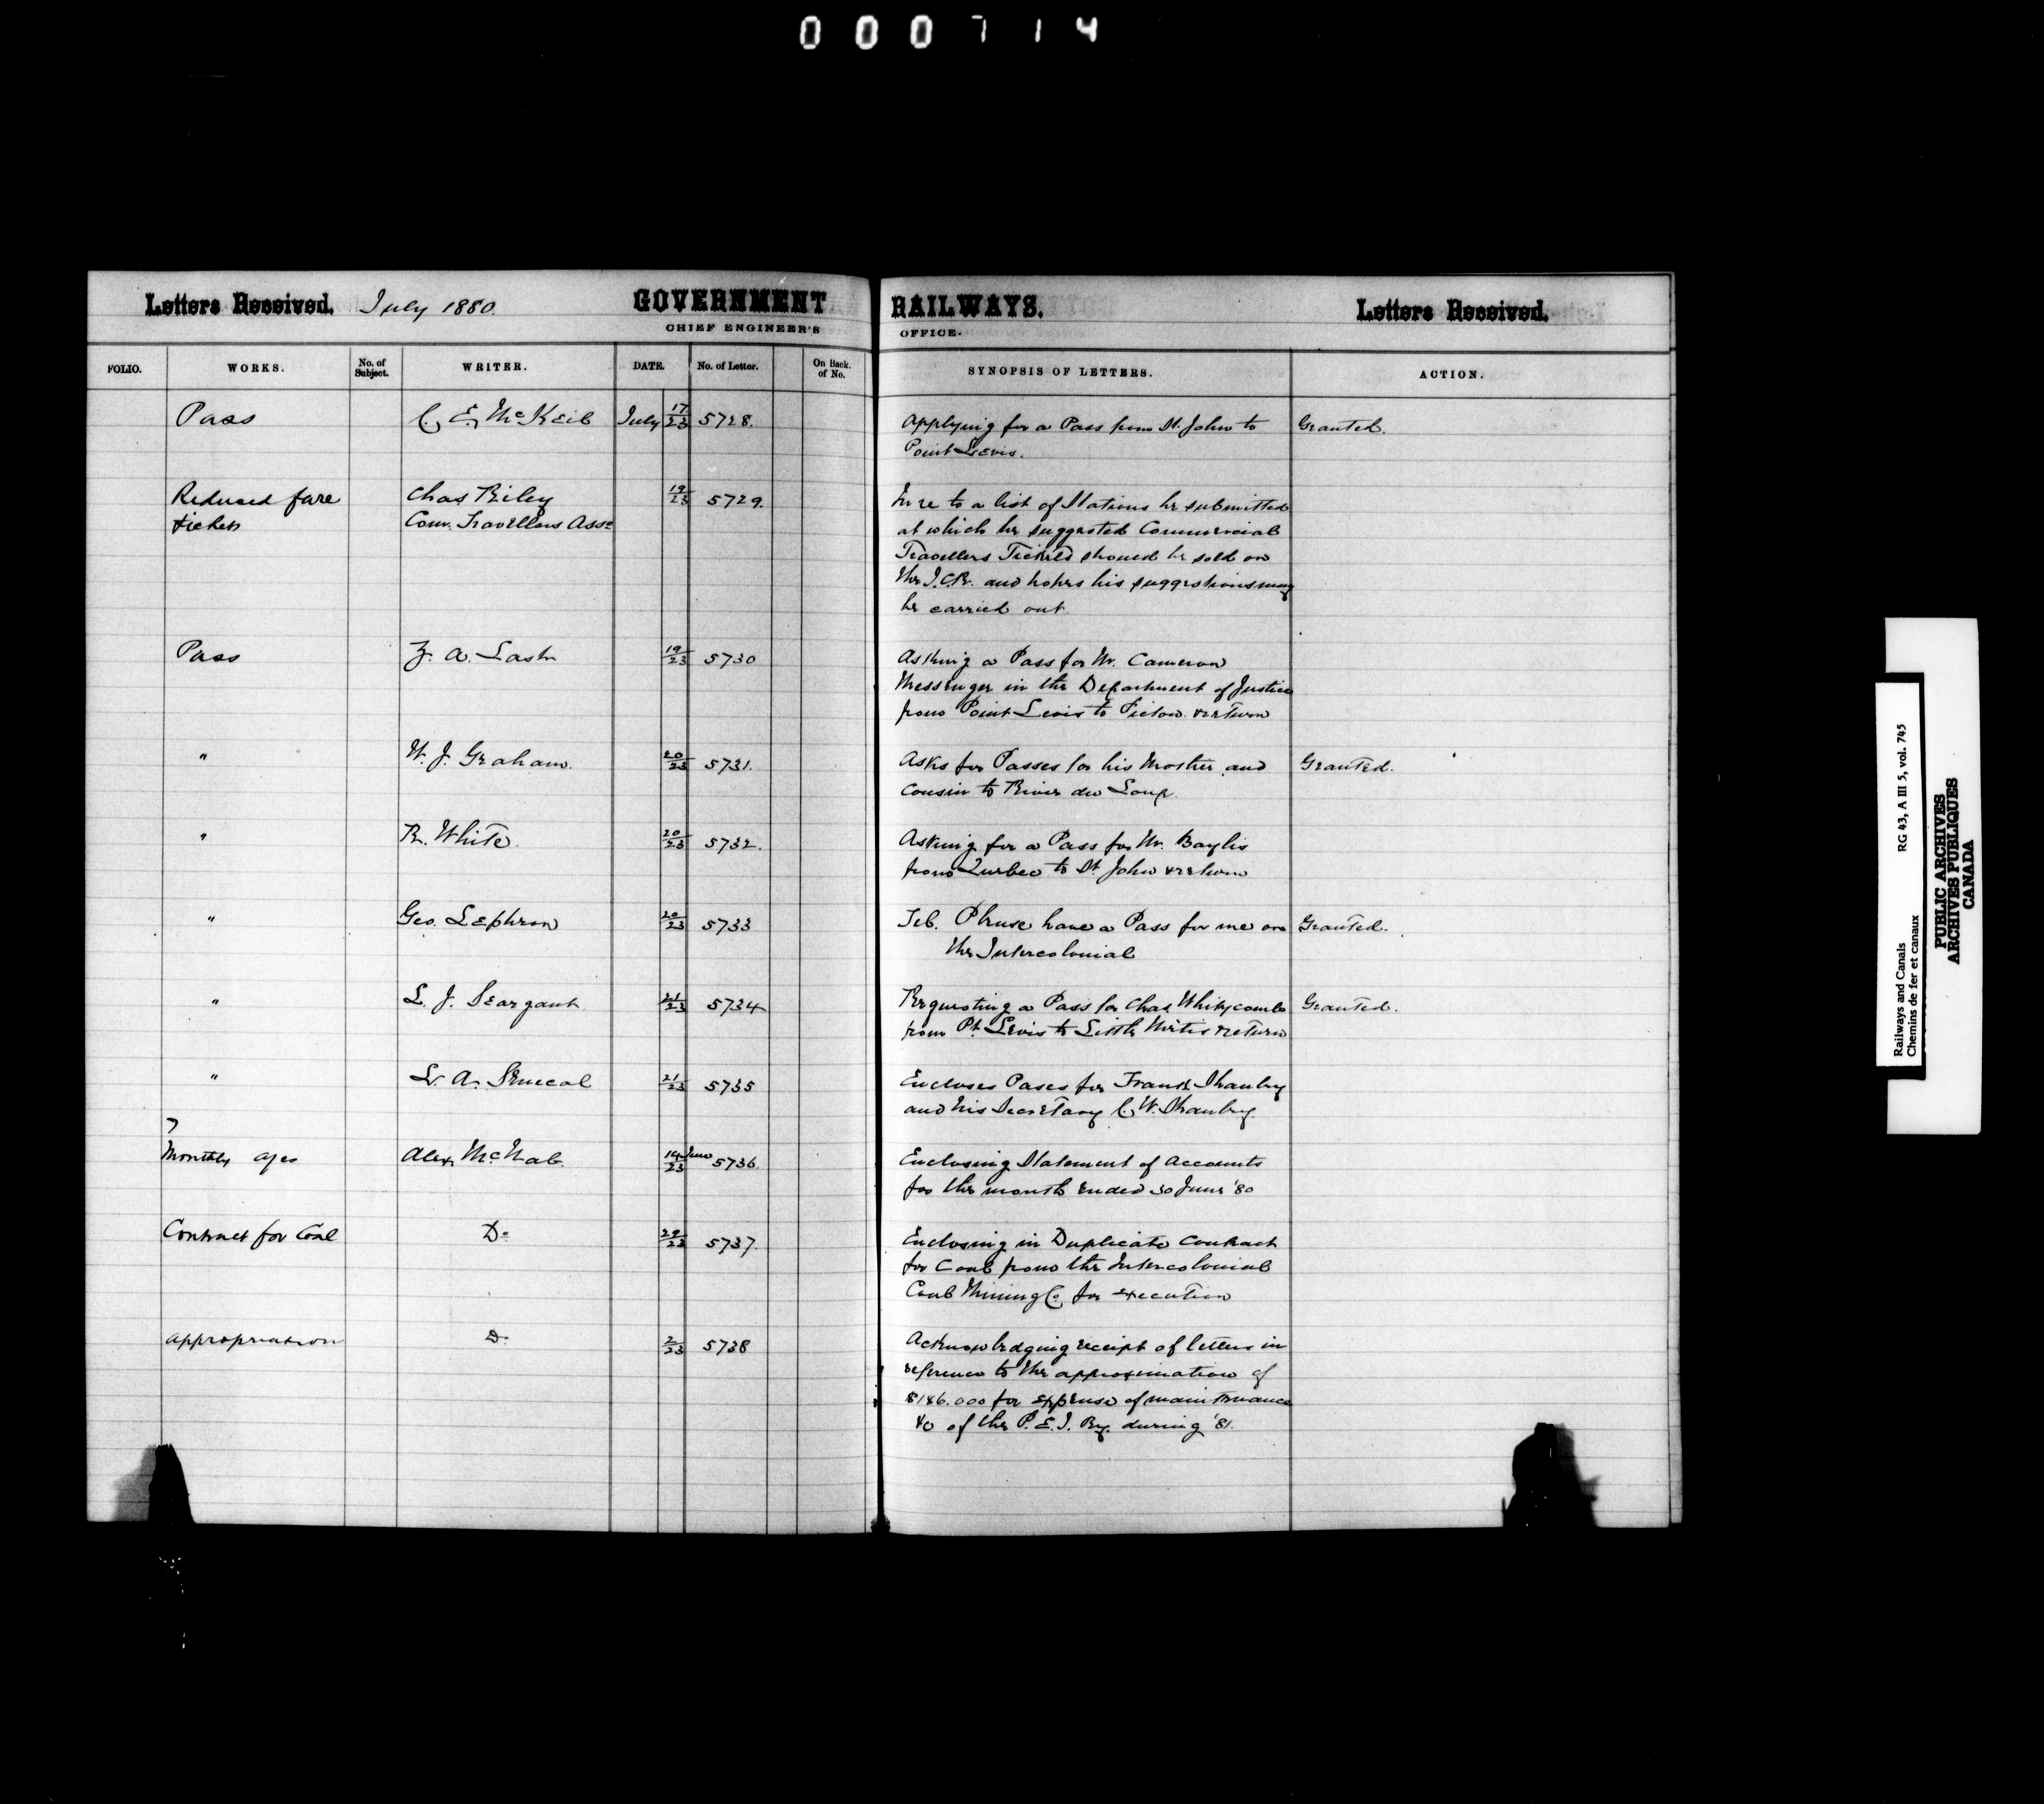 000714
Letters Received. July 1880.
GOVERNMENT RAILWAYS.
Letters Received.
CHIEF ENGINEER'S OFFICE.
FOLIO. WORKS. No. of Subject. WRITER. DATE. No. of Letter. On Back of No. SYNOPSIS OF LETTERS. ACTION.
Pass C. E. McKeib July 17/23 5728. Applying for a Pass from St. John to Granted.
Point Levis.
Reduced fare Chas Riley 19/23 5729. In re to a list of Stations he submitted
tickets Com. Travellers Assn at which he suggested Commercial
Travellers Tickets should be sold on
the I.C.R. and hopes his suggestions may
be carried out
Pass Z. A. Lash 19/23 5730 Asking a Pass for Mr. Cameron
Messenger in the Department of Justice
from Point Levis to Pictou & return
" W. J. Graham. 20/23 5731. Asks for Passes for his Mother and Granted.
Cousin to River du Loup.
" R. White. 20/23 5732. Asking for a Pass for Mr. Baylis
from Quebec to St. John & return
" Geo. Lephron 20/23 5733 Tel. Please have a Pass for me on Granted.
the Intercolonial
" L. J. Seargant 21/23 5734 Requesting a Pass for Chas. Whitycomb Granted.
from Pt. Levis to Little Metis & return
" L. A. Senecal 21/23 5735 Encloses Pases for Frank Shanly
and his Secretary C. W. Shanly.
Monthly a/cs Alex. McNab. 14 June/23 5736. Enclosing Statement of Accounts
for the month ended 30 June '80
Contract for Coal Do 22/23 5737. Enclosing in Duplicate Contract
for Coal from the Intercolonial
Coal Mining Co. for execution
appropriation Do 2/23 5738 Acknowledging receipt of letters in
reference to the approximation of
$186.000 for expense of maintenance
&c of the P.E.I. Ry. during '81.
Railways and Canals RG 43, A III 5, vol. 745
Chemins de fer et canaux
PUBLIC ARCHIVES
ARCHIVES PUBLIQUES
CANADA